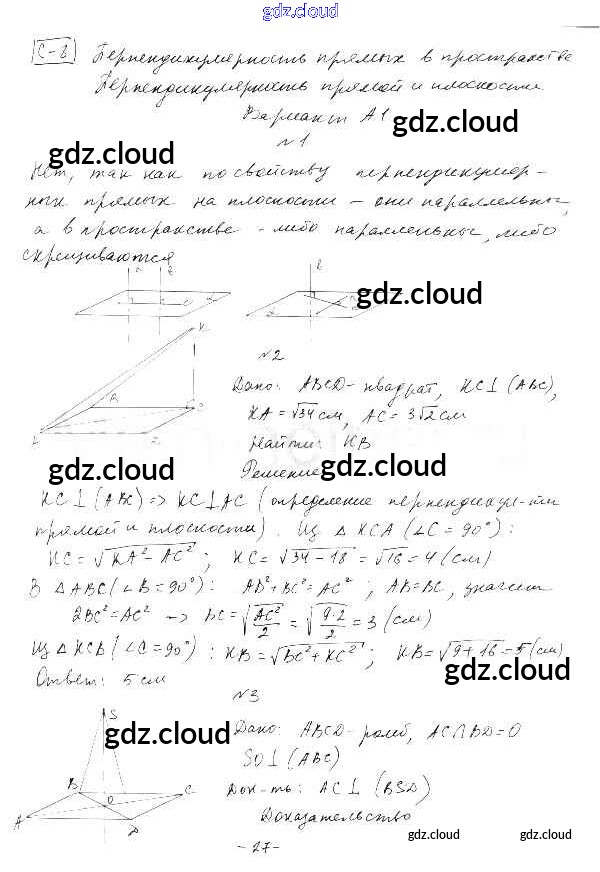 gdz.cloud
С-8 Перпендикулярность прямых в пространстве
Перпендикулярность прямой и плоскости.
Вариант А1
gdz.cloud
№1
gdz.cloud
Нет, так как по свойству перпендикуляр-
ных прямых на плоскости – они параллельны,
а в пространстве – либо параллельны, либо
скрещиваются
a b α
b α
gdz.cloud
K
№2
Дано: ABCD – квадрат, KC⊥(ABC),
KA = √34 см, AC = 3√2 см
Найти: KB
gdz.cloud
Решение
gdz.cloud
KC⊥(ABC) => KC⊥AC (определение перпендикул-ти
прямой и плоскости). Из △KCA (∠C = 90°):
KC = √KA² – AC²; KC = √34 – 18 = √16 = 4 (см)
В △ABC (∠B = 90°): AB² + BC² = AC²; AB = BC, значит
2BC² = AC² → BC = √AC²/2 = √9·2/2 = 3 (см)
Из △KCB (∠C = 90°): KB = √BC² + KC²; KB = √9 + 16 = 5 (см)
gdz.cloud
Ответ: 5 см
№3
S
gdz.cloud
Дано: ABCD – ромб, AC∩BD = O
SO⊥(ABC)
B C
O
Док-ть: AC⊥(BSD)
A D
Доказательство
gdz.cloud gdz.cloud
- 27 -